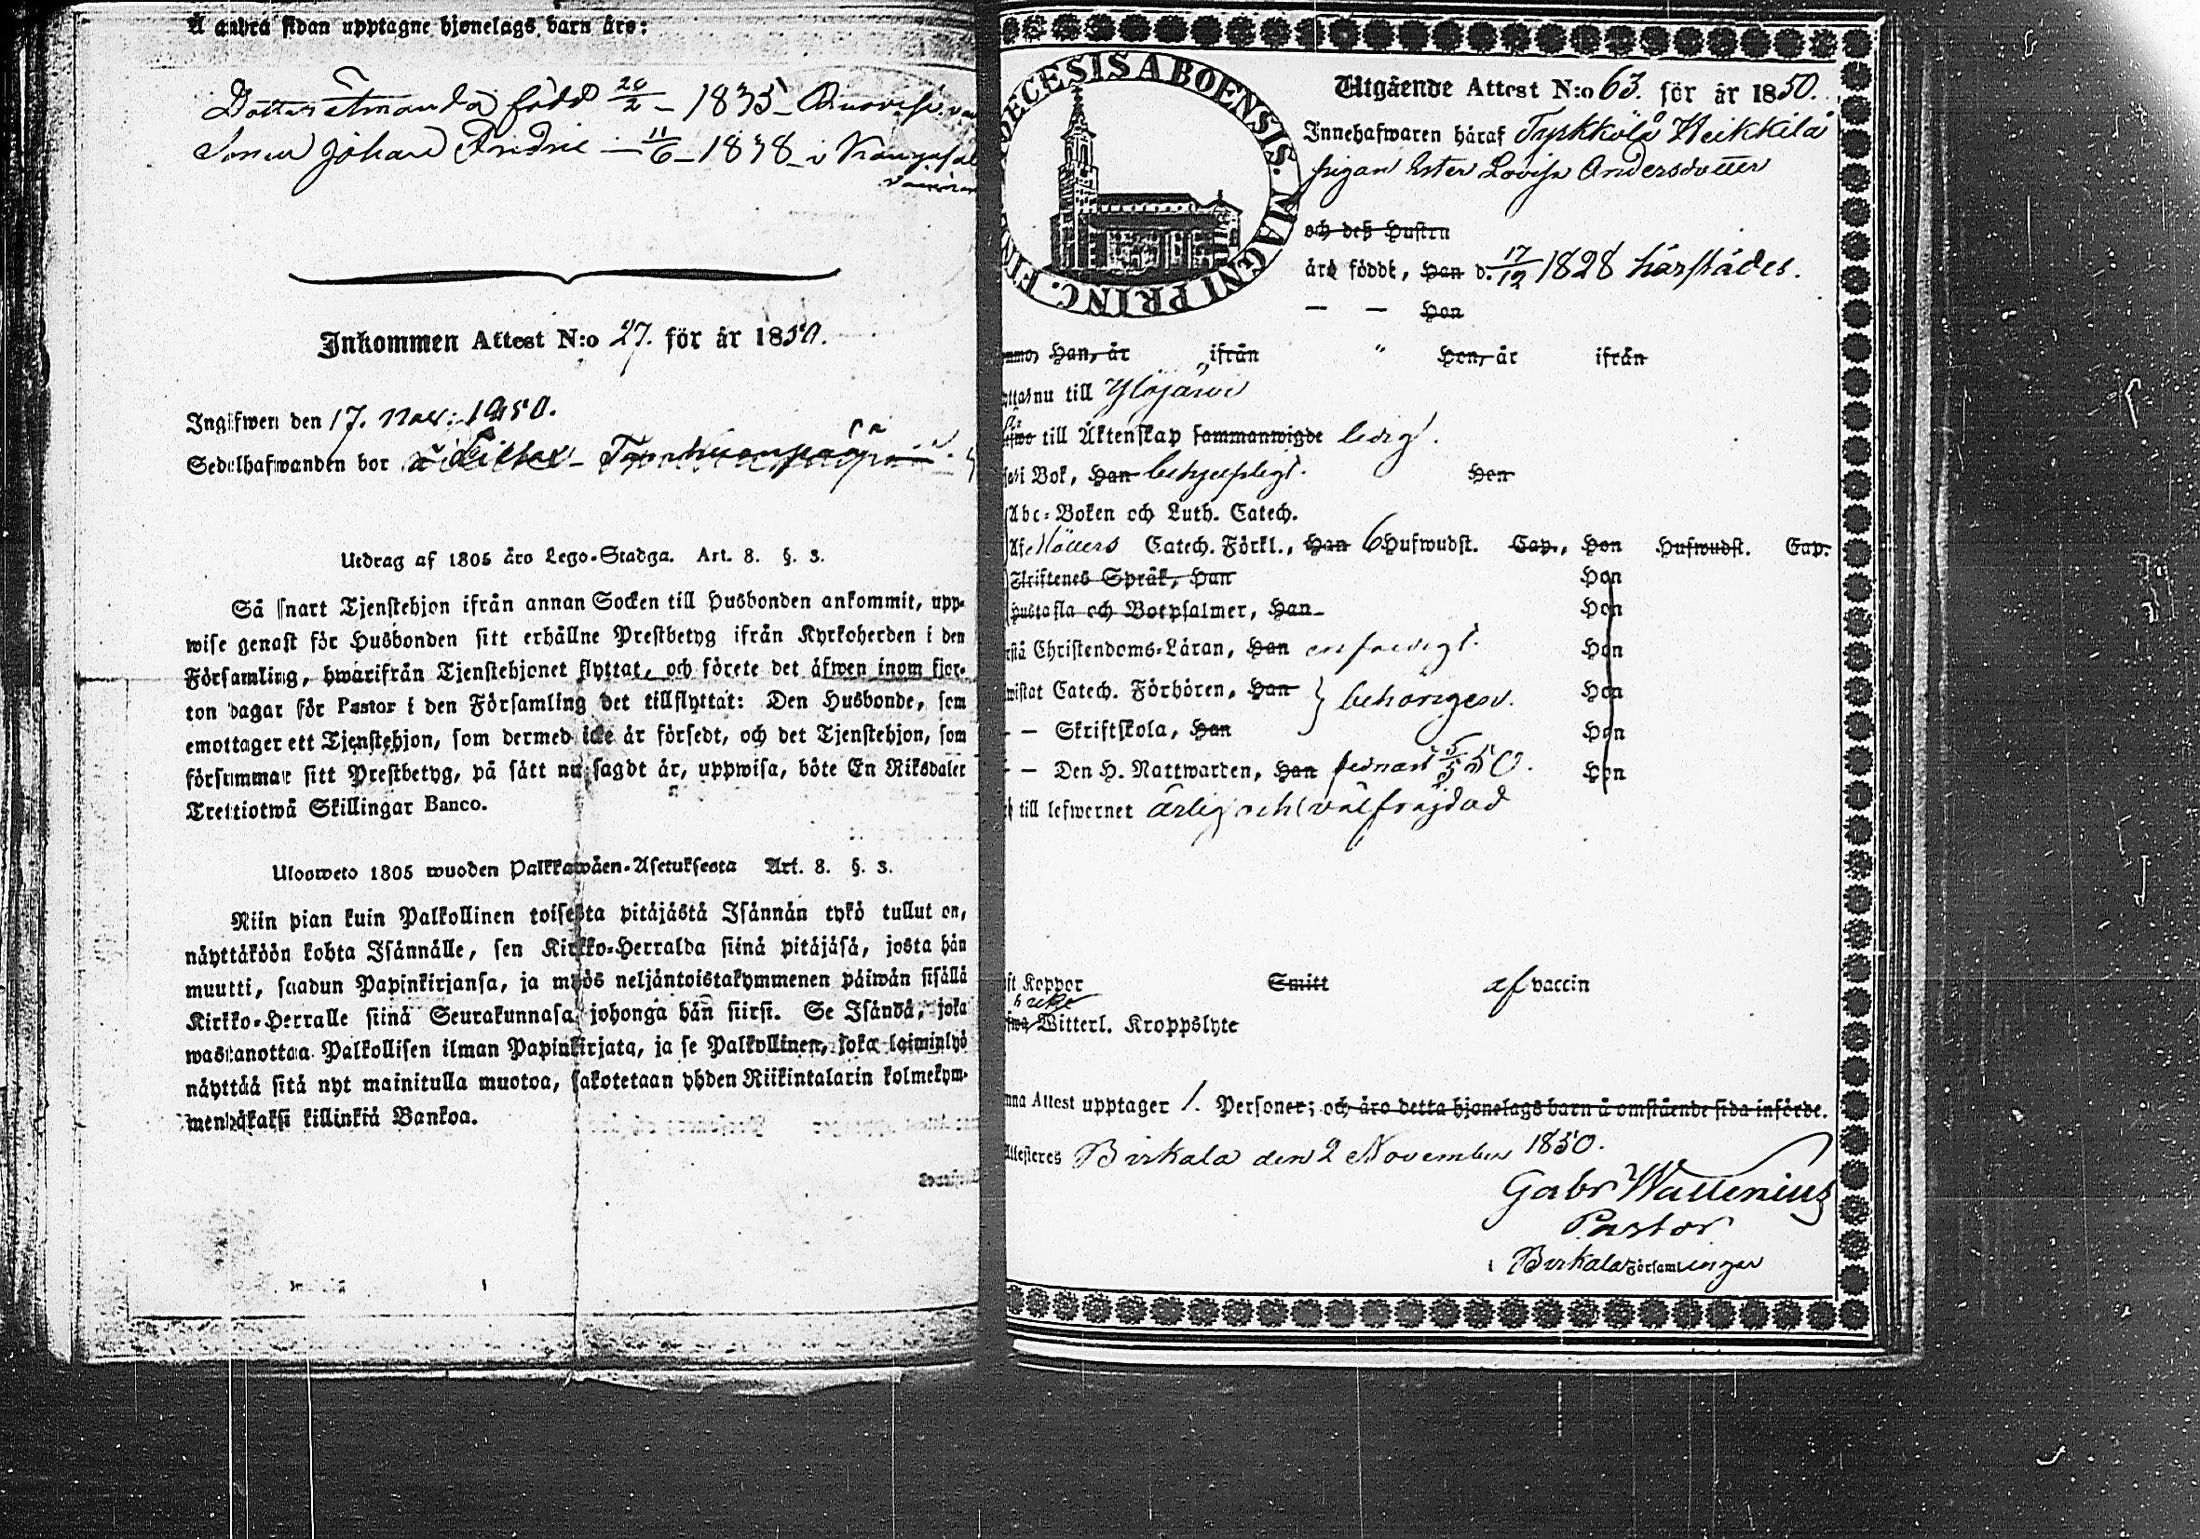 Å andra sidan upptagne hjonelags barn äro:
Dotter Amanda född 20/2 - 1835
Sonen Johan Fridric - 11/6 - 1838 - i Kangasal
Inkommen Attest N:o 27. för år 1850.
Ingifwen den 17. Nov: 1850.
Sedelhafwanden bor
Utdrag af 1805 åro Lego-Stadga. Art. 8. §. 3.
Så snart Tjenstehjon ifrån annan Socken till Husbonden ankommit, upp-
wise genast för Husbonden sitt erhållne Prestbetyg ifrån Kyrkoherden i den
Församling, hwarifrån Tjenstehjonet flyttat, och förete det äfwen inom fjor-
ton dagar för Pastor i den Församling det tillflyttat: Den Husbonde, som
emottager ett Tjenstehjon, som dermed icke är försedt, och det Tjenstehjon, som
försummar sitt Prestbetyg, på sätt nu sagdt är, uppwisa, böte En Riksdaler
Trettiotwå Skillingar Banco.
Ulosweto 1805 wuoden Palkkawäen-Asetuksesta Art. 8. §. 3.
Niin pian kuin Palkollinen toisesta pitäjästä Isännän tykö tullut on,
näyttäköön kohta Isännälle, sen Kirkko-Herralda siinä pitäjäsä, josta hän
muutti, saadun Papinkirjansa, ja myös neljäntoistakymmenen päiwän sisällä
Kirkko-Herralle siinä Seurakunnasa, johonga hän siirsi. Se Isändä, joka
wastanottaa Palkollisen ilman Papinkirjata, ja se Palkollinen, joka laiminlyö
näyttää sitä nyt mainitulla muotoa, sakotetaan yhden Riikintalarin kolmekym-
mentäkaksi killinkiä Bankoa.
DECESIS ABOENSIS. MAGNI PRINC. FIN
Utgående Attest N:o 63. för år 1850.
Innehafwaren häraf Tyrkkölä Heikkilä
pigan Ester Lovisa Andersdotter
och deß Hustru
äro födde, Han d. 17/12 1828 härstädes.
— — Hon
Han, är ifrån " Hon, är ifrån
nu till Ylöjärvi
till Äktenskap sammanwigde ledig.
i Bok, Han behjelpligt. Hon
Abc-Boken och Luth. Catech.
Af Möllers Catech. Förkl., Han 6 Hufwudst. Cap., Hon Hufwudst. Cap.
Skriftenes Språk, Han Hon
Hustafla och Botpsalmer, Han Hon
Christendoms-Läran, Han enfaldigt. Hon
wistat Catech. Förhören, Han } behörigen. Hon
— Skriftskola, Han Hon
— Den H. Nattwarden, Han sednast 5/5 50. Hon
till lefwernet ärlig och välfräjdad
Koppor Smitt af vaccin
Witterl. Kroppslyte
Attest upptager 1. Personer; och äro detta hjonelags barn å omstående sida införde.
Attesteres Birkala den 2 November 1850.
Gabr Wallenius
Pastor
i Birkala Församlingar